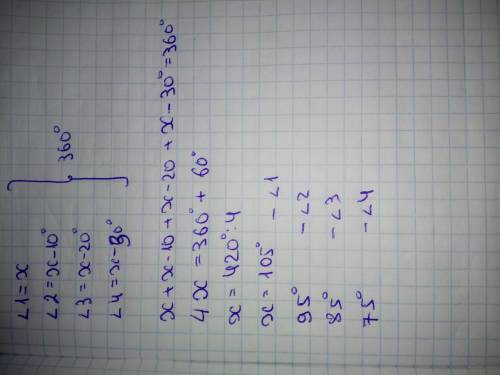 ∠1=x
∠2=x-10°
∠3=x-20°
∠4=x-30°
360°
x+x-10+x-20+x-30°=360°
4x=360°+60°
x=420°:4
x=105° -∠1
95° -∠2
85° -∠3
75° -∠4